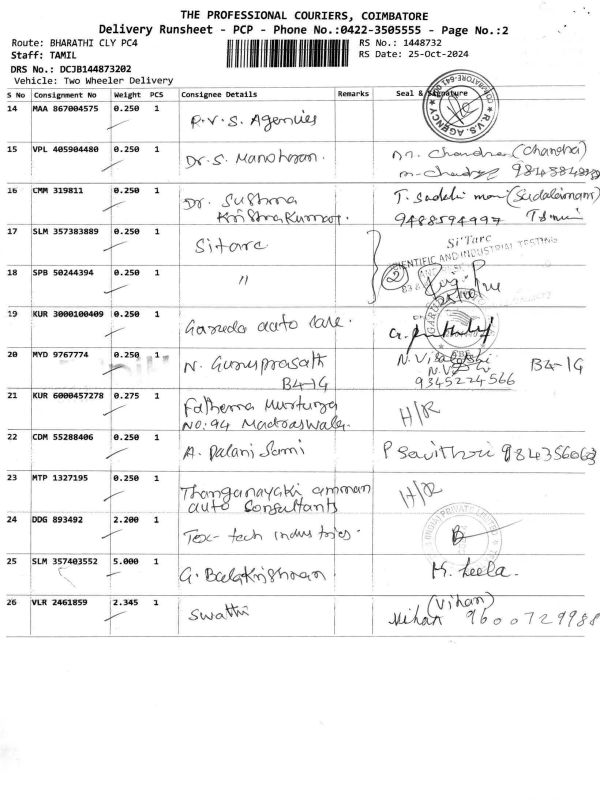 THE PROFESSIONAL COURIERS, COIMBATORE
Delivery Runsheet - PCP - Phone No.:0422-3505555 - Page No.:2
Route: BHARATHI CLY PC4
RS No.: 1448732
Staff: TAMIL
RS Date: 25-Oct-2024
DRS No.: DCJB144873202
Vehicle: Two Wheeler Delivery
S No Consignment No Weight PCS Consignee Details Remarks Seal & Signature
14 MAA 867004575 0.250 1 R.V.S. Agencies R.V.S. AGENCY
15 VPL 405904480 0.250 1 Dr. S. Manoharan. (Chandra)
16 CMM 319811 0.250 1 Dr. Sushma (Sudalaimani)
Krishnakumar. 9488594997
17 SLM 357383889 0.250 1 Sitarc Si'Tarc
SCIENTIFIC AND INDUSTRIAL TESTING
18 SPB 50244394 0.250 1 " 2
19 KUR 3000100409 0.250 1 Garuda auto care.
20 MYD 9767774 0.250 1 N. Guruprasath B4-1G
B4-1G 9345224566
21 KUR 6000457278 0.275 1 Fathema Murtuza H/R
NO: 94
22 CDM 55288406 0.250 1 A. Palani Sami P Savithri
23 MTP 1327195 0.250 1 Thanganayaki amman H/R
auto Consultants
24 DDG 893492 2.200 1 Tex-tech industries. PRIVATE LIMITED
25 SLM 357403552 5.000 1 G. Balakrishnan M. Leela.
26 VLR 2461859 2.345 1 Swathi (Vihan)
Vihan 9600729988